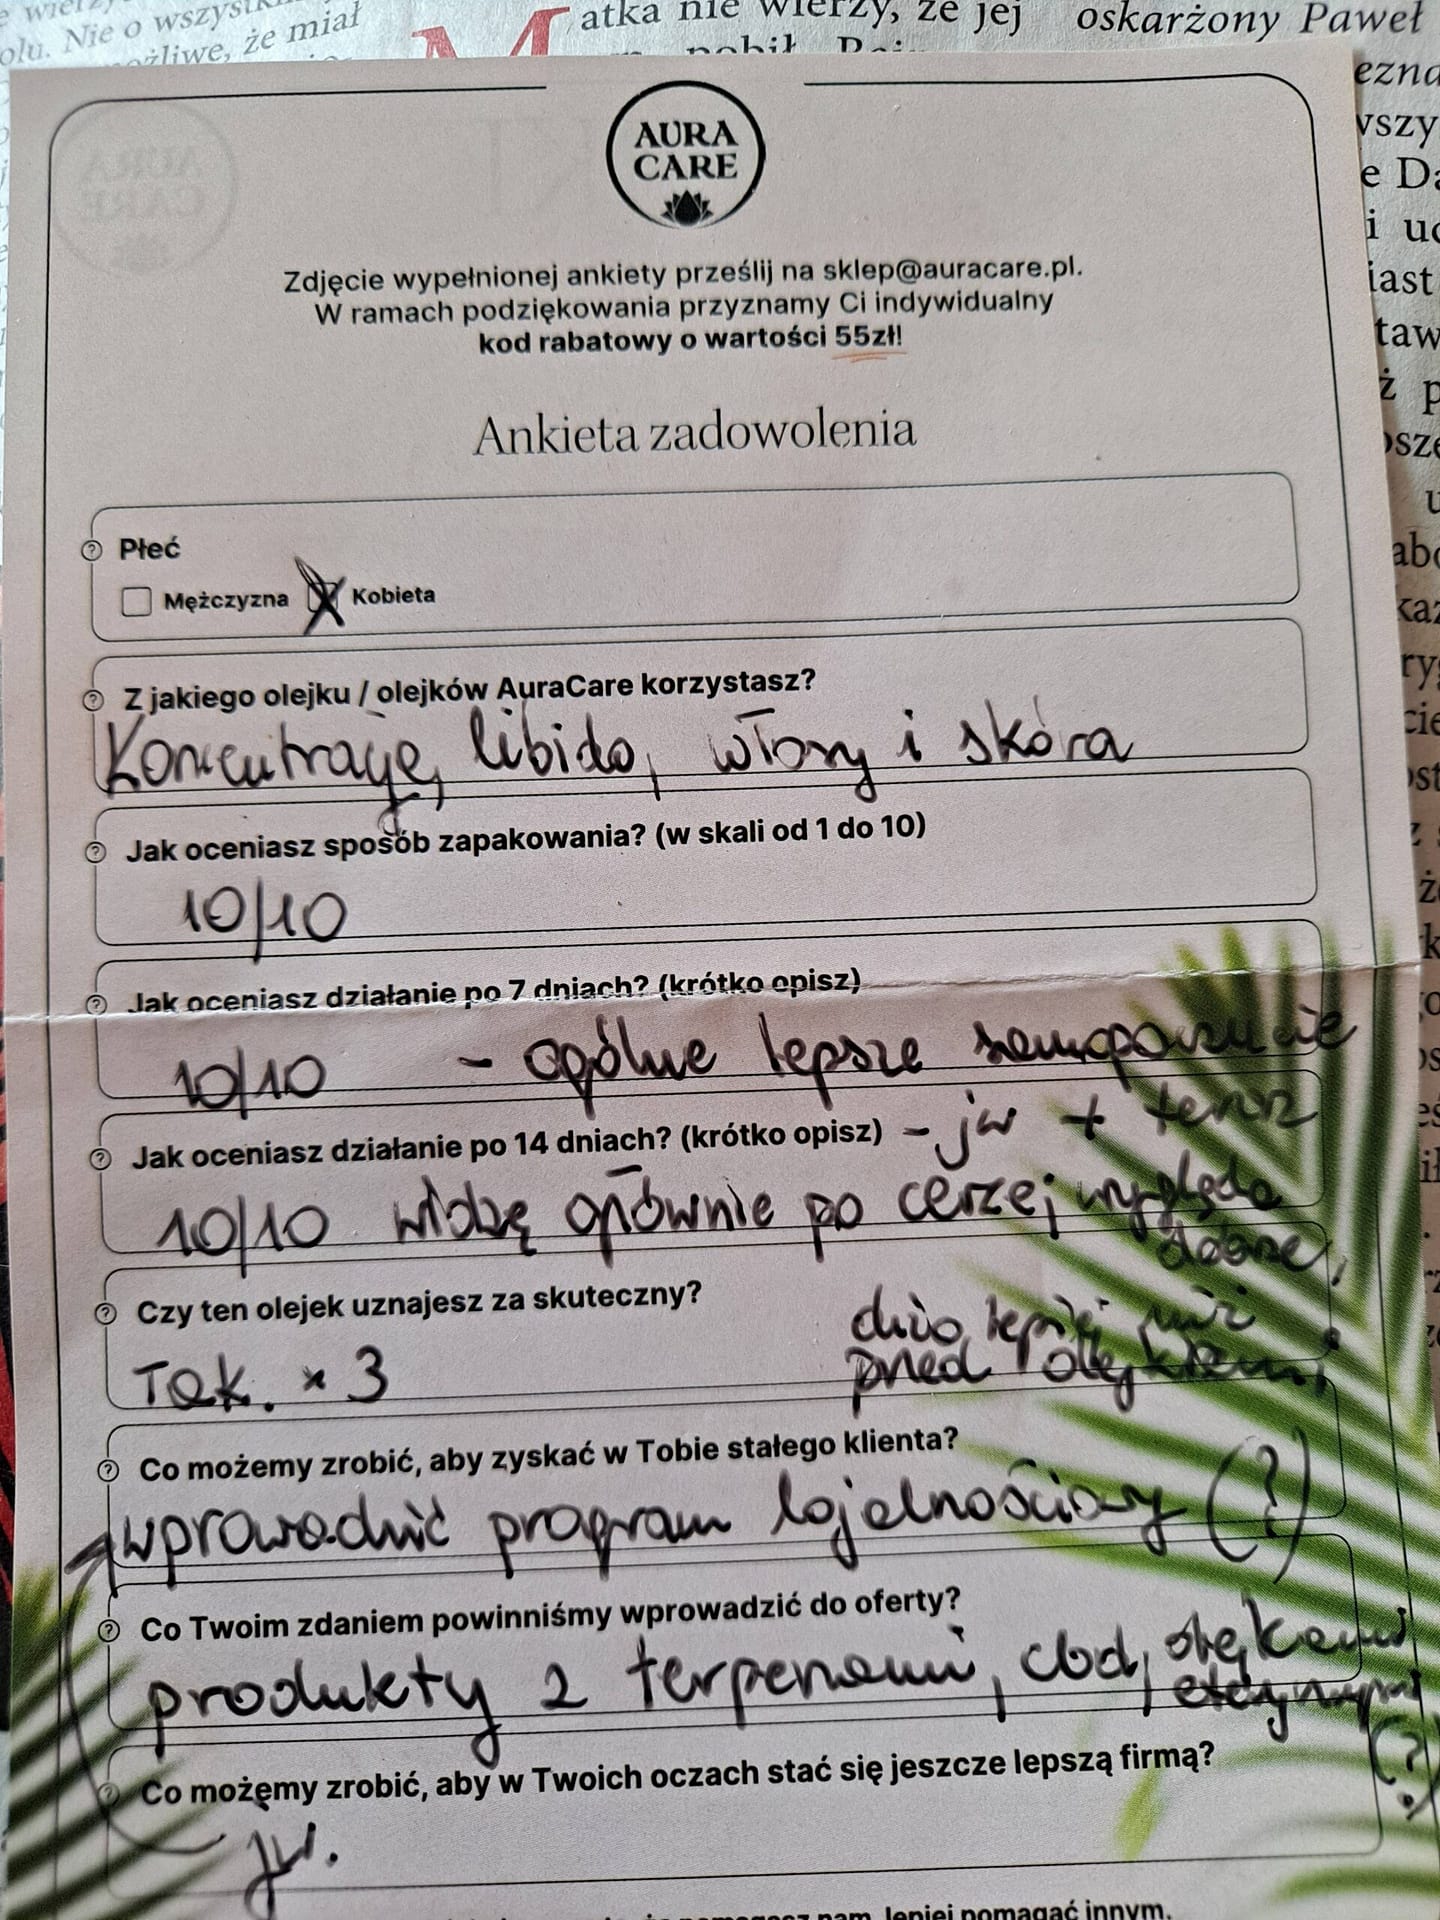 atka nie wierzy, że jej
oskarżony Paweł
olu. Nie o
że miał
AURA
CARE
Zdjęcie wypełnionej ankiety prześlij na sklep@auracare.pl.
W ramach podziękowania przyznamy Ci indywidualny
kod rabatowy o wartości 55zł!
Ankieta zadowolenia
Płeć
Mężczyzna Kobieta
Z jakiego olejku / olejków AuraCare korzystasz?
Koncentrację, libido, włosy i skóra
Jak oceniasz sposób zapakowania? (w skali od 1 do 10)
10/10
Jak oceniasz działanie po 7 dniach? (krótko opisz)
10/10 - ogólne lepsze samopoczucie
Jak oceniasz działanie po 14 dniach? (krótko opisz) - jw + teraz
10/10 widzę głównie po cerze, wygląda
dobrze,
Czy ten olejek uznajesz za skuteczny?
dużo lepiej niż
Tak. x 3
przed olejkiem
Co możemy zrobić, aby zyskać w Tobie stałego klienta?
wprowadzić program lojalnościowy (?)
Co Twoim zdaniem powinniśmy wprowadzić do oferty?
produkty z terpenami, cbd, olejkami
eterycznymi
(?)
Co możemy zrobić, aby w Twoich oczach stać się jeszcze lepszą firmą?
jw.
nam, lepiej pomagać innym.